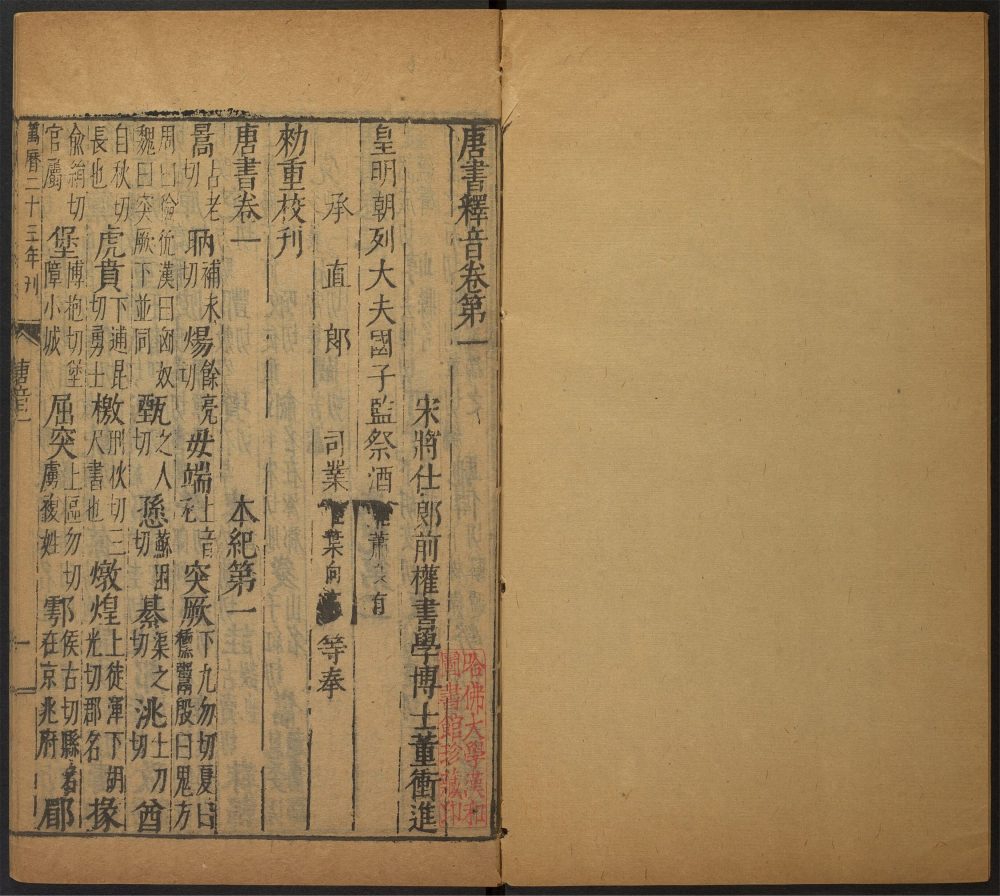 唐書釋音卷第一
宋將仕郎前權書學博士董衝進
皇明朝列大夫國子監祭酒蕭良有
承直郎司業葉向高等奉
勑重校刊
唐書卷一 本紀第一
暠古老切 昞補永切 煬餘亮切 毋端上音无 突厥下九勿切夏曰獯鬻殷曰鬼方
周曰獫狁漢曰匈奴魏曰突厥下並同 甄之人切 愻蘇困切 綦渠之切 洮土刀切 酋
自秋切長也 虎賁下逋昆切勇士 檄刑狄切三尺書也 燉煌上徒渾下胡光切郡名 掾
俞絹切官屬 堡博抱切堡障小城 屈突上區勿切虜複姓 鄠侯古切縣名在京兆府 郿
萬曆二十三年刊
唐音一
一
哈佛大學漢和圖書館珍藏印